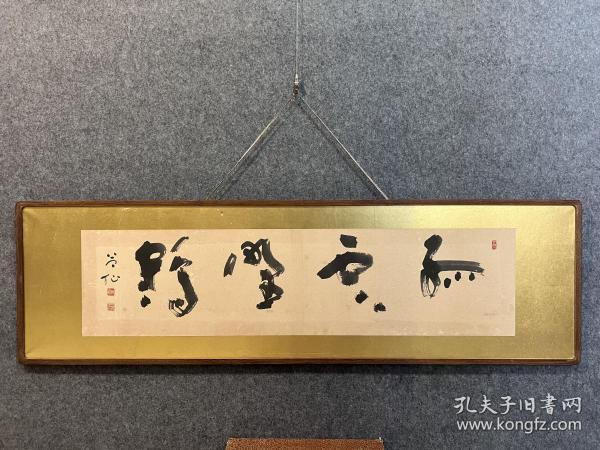 孤雲野鶴
孔夫子旧书网
www.kongfz.com